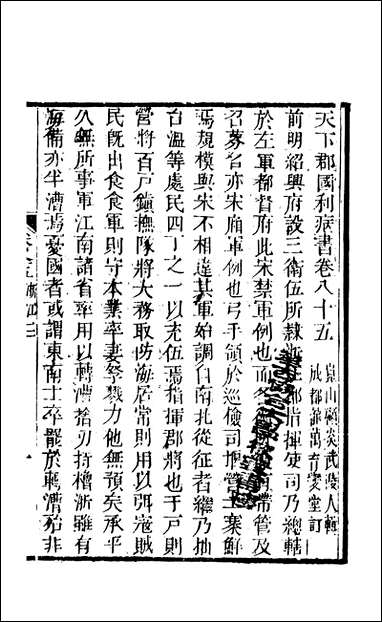 天下郡國利病書卷八十五
崑山顧炎武亭人輯
成都龍萬育燮堂訂
前明紹興府設三衛伍所隷浙江都指揮使司乃總轄
於左軍都督府此宋禁軍例也而外 帶管及
召募名亦宋廂軍例也弓手領於巡儉司把營土寨鮮
焉規模與宋不相違其軍始調自南北從征者繼乃抽
台溫等處民四丁之一以充伍焉指揮郡將也千戶則
營將百戶鎮撫隊將大務取防海居常則用以弭寇賊
民旣出食食軍則守本業率妻孥戮力他無預矣承平
久無所事軍江南諸省率用以轉漕捨刃持櫓浙雖有
海備亦半漕焉憂國者或謂東南士卒罷於轉漕殆非